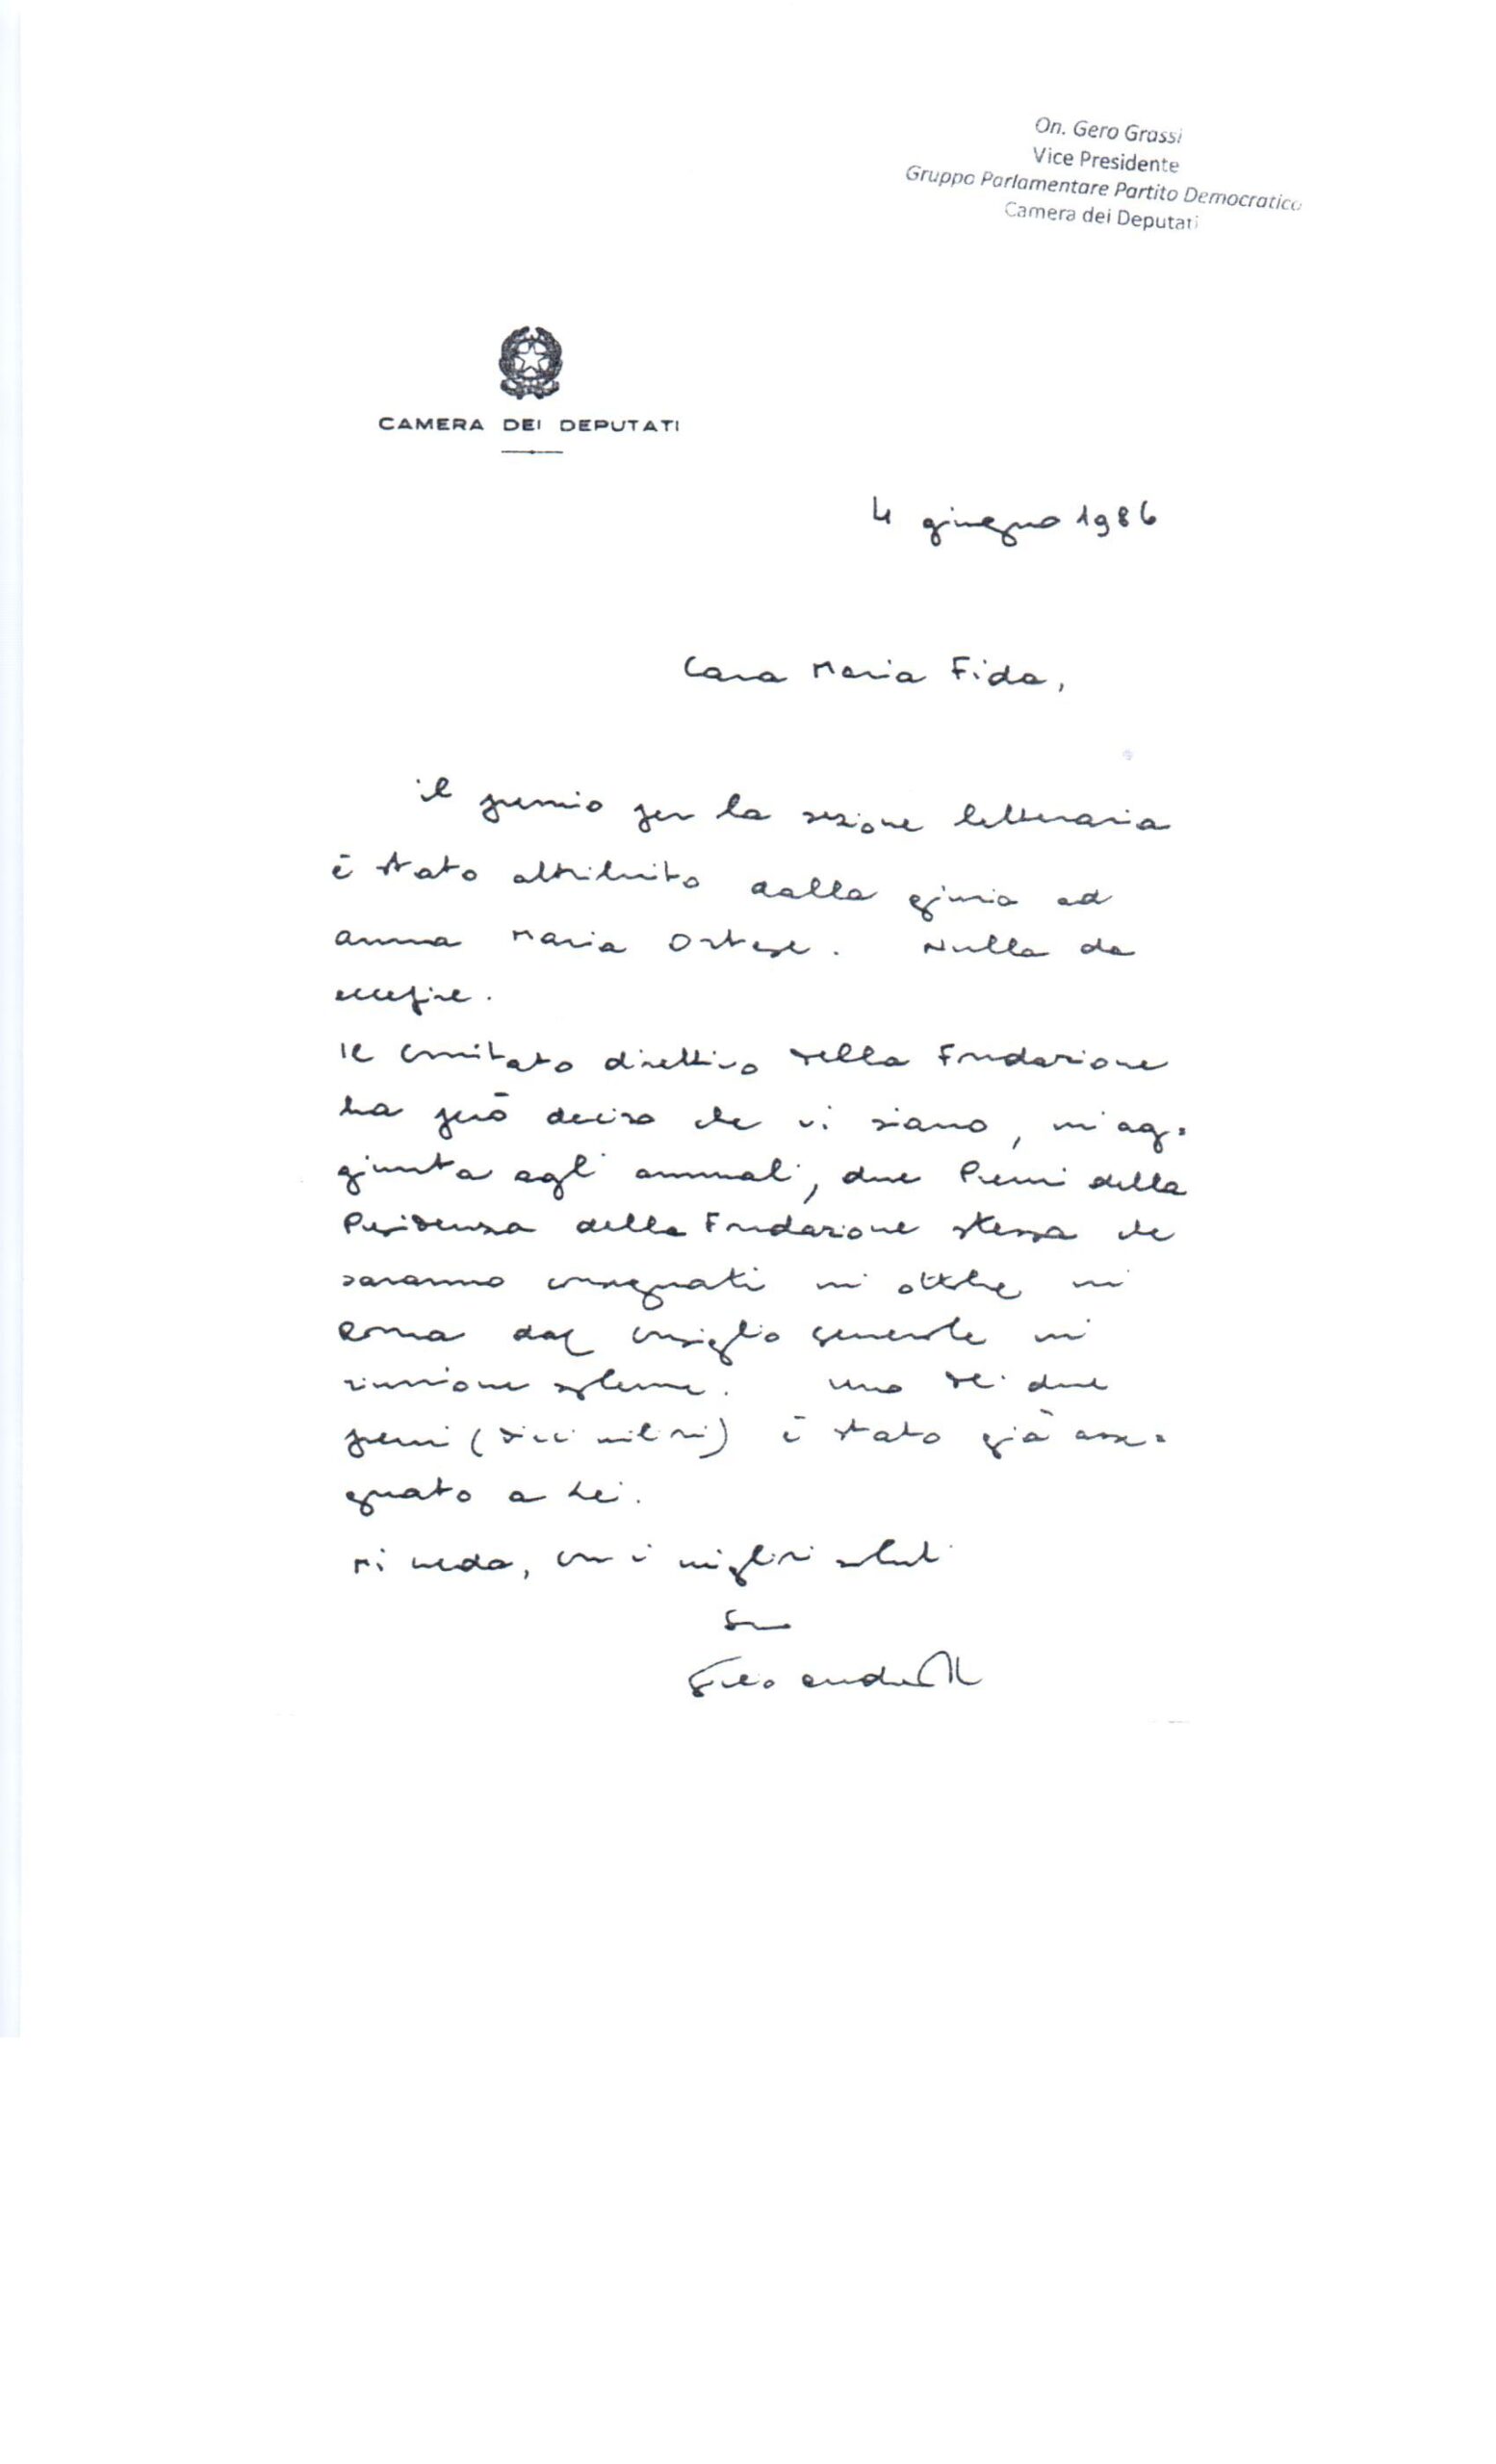 On. Gero Grassi
Vice Presidente
Gruppo Parlamentare Partito Democratico
Camera dei Deputati
CAMERA DEI DEPUTATI
4 giugno 1986
Cara Maria Fida,
il premio per la sezione letteraria
è stato attribuito dalla giuria ad
Anna Maria Ortese. Nulla da
eccepire.
Il Comitato direttivo della Fondazione
ha però deciso che vi siano, in ag=
giunta agli annuali, due Premi della
Presidenza della Fondazione stessa che
saranno consegnati in ottobre in
Roma dal Consiglio Generale in
riunione solenne. Uno dei due
premi (dieci milioni) è stato già asse=
gnato a Lei.
Mi creda, con i migliori saluti
Suo
Giulio Andreotti